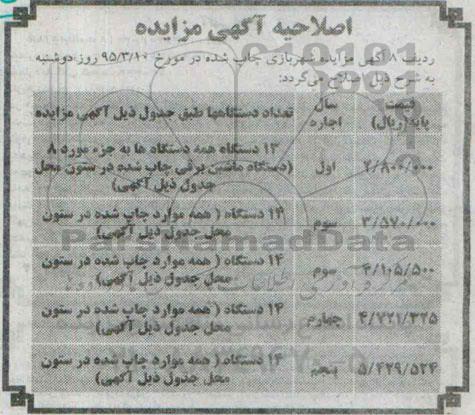 اصلاحیه آگهی مزایده
ردیف ۸ آگهی مزایده شهربازی چاپ شده در مورخ ۹۵/۳/۱۰ روز دوشنبه
به شرح ذیل اصلاح می‌گردد:
قیمت پایه(ریال) سال اجاره تعداد دستگاهها طبق جدول ذیل آگهی مزایده
۱۳ دستگاه همه دستگاه ها به جزء مورد ۸
۲/۸۰۰/۰۰۰ اول (دستگاه ماشین برقی چاپ شده در ستون محل
جدول ذیل آگهی)
۳/۵۷۰/۰۰۰ سوم ۱۴ دستگاه ( همه موارد چاپ شده در ستون
محل جدول ذیل آگهی)
۴/۱۰۵/۵۰۰ سوم ۱۴ دستگاه ( همه موارد چاپ شده در ستون
محل جدول ذیل آگهی)
۴/۷۲۱/۳۲۵ چهارم ۱۴ دستگاه ( همه موارد چاپ شده در ستون
محل جدول ذیل آگهی)
۵/۴۲۹/۵۲۴ پنجم ۱۴ دستگاه ( همه موارد چاپ شده در ستون
محل جدول ذیل آگهی)
ParsNamadData